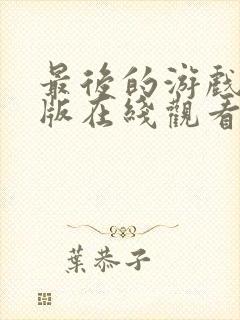 最後的游戲
版在綫觀看
葉恭子